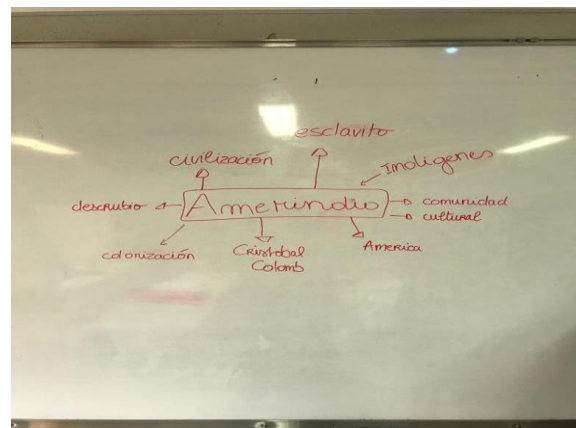 esclavito
civilización
Indígenes
descrubio
Amerindio
comunidad
cultural
colonización
Cristobal
Colomb
America